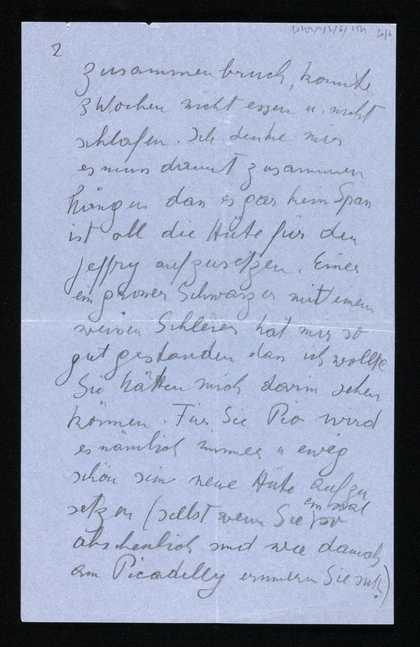 2
zusammenbruch, konnte
3 Wochen nicht essen u. nicht
schlafen. Ich denke mir
es muss damit zusammen
hängen dan es gar kein Span
ist all die Hüte für den
Jeffry aufzusetzen. Einer
ein groser Schwarzer mit einem
weisen Schleier hat mir so
gut gestanden dan ich wollte
Sie hätten mich darin sehen
können. Für Sie Pio wird
es nämlich immer u ewig
schön sein neue Hüte aufzu
setzen (selbst wenn Sie einmal so
abscheulich sind wie damals
am Picadilly erinnern Sie sich?)